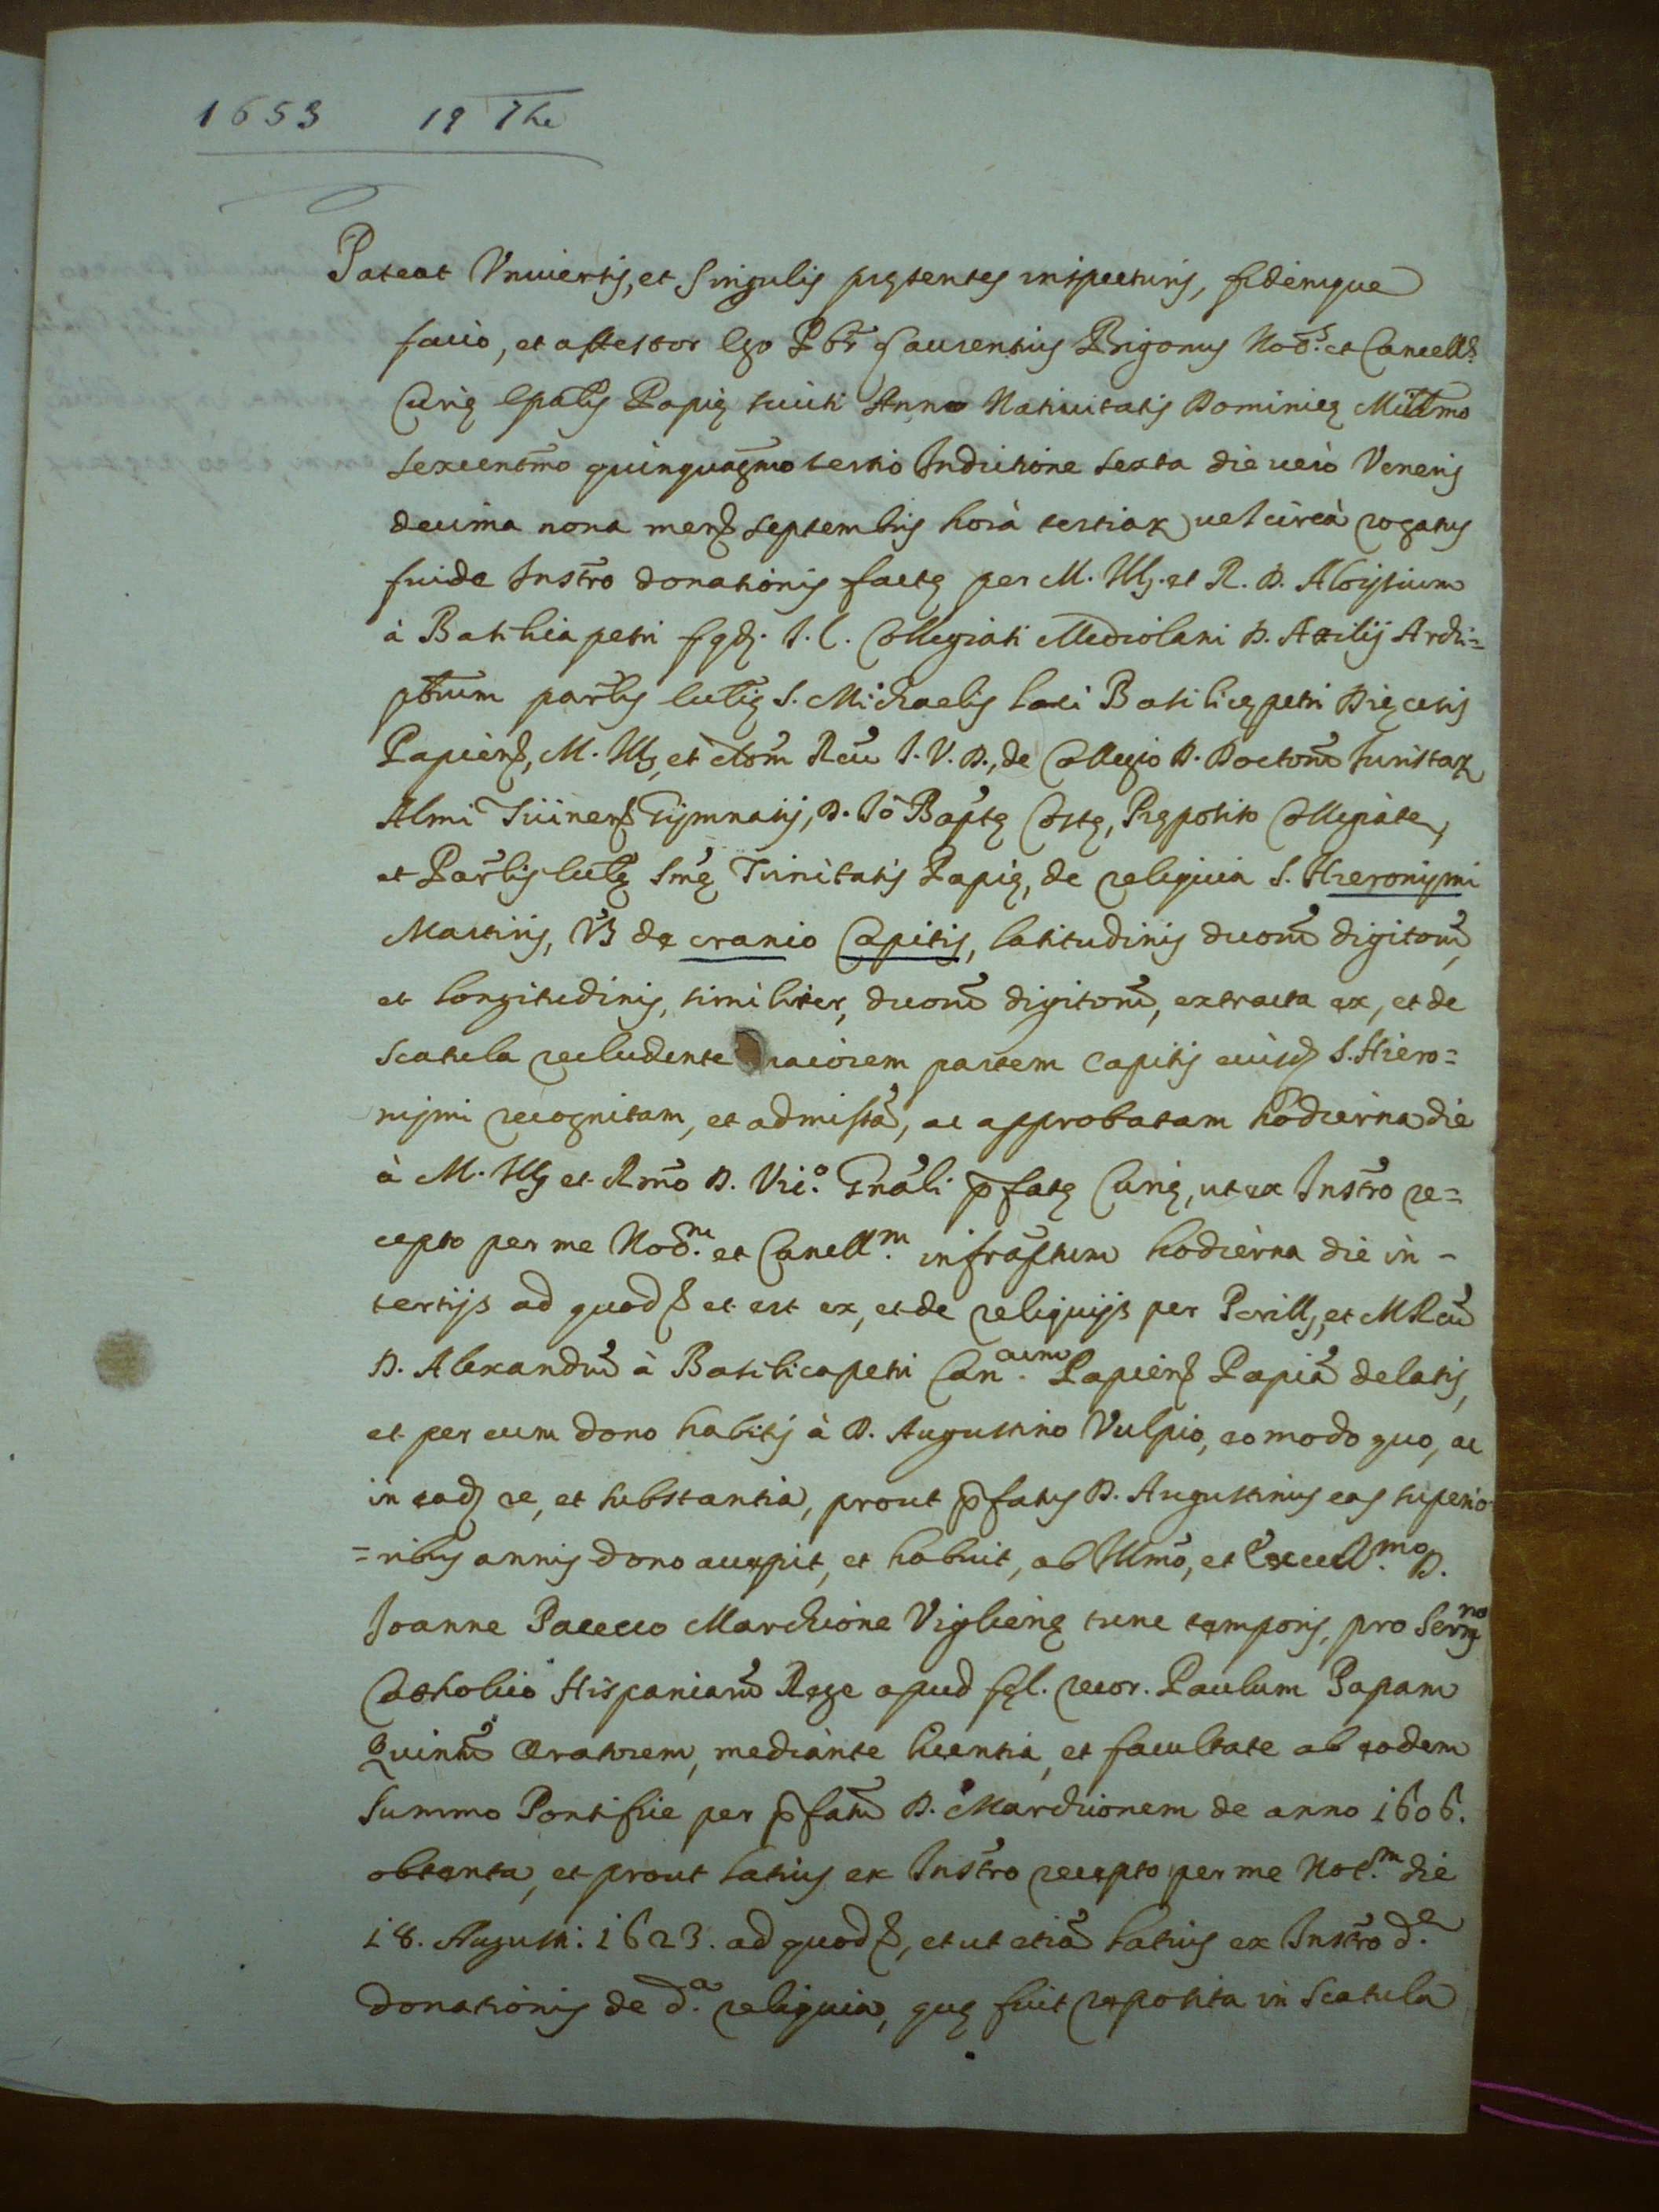 1653 19 7bre
Pateat Vniuersis, et singulis pręsentes inspecturis, fidemque
facio, et attestor Ego Pbr Laurentius Brigonus Nots. et Cancells.
Curię Epalis Papię sicuti Anno Natiuitatis Dominicę Millmo
sexcentmo quinquagmo tertio Indictione sexta die uerò Veneris
decima nona mens Septembris horà tertiar uel circà rogatus
fui de Instro donationis factę per M. Ill. et R. D. Aloysium
à Basilicapetri fqd. I. C. Collegiati Mediolani D. Attilij Archi=
pbrum parlis Eccłię S. Michaelis loci Basilicępetri Dięcesis
Papiens, M. Ill, et Adm Reu I. V. D., de Collegio D. Doctorũ Iuristar
Almi Ticinens Gijmnasij, D. Iò Baptę Costę, Pręposito Collegiatę,
et Parlis Eccłę Smę Trinitatis Papię, de reliquia S. Hieronijmi
Martiris, Vz de cranio Capitis, latitudinis duorũ digitorũ,
et longitudinis, similiter, duorũ digitorũ, extracta ex, et de
Scatula recludente maiorem partem Capitis eiusd S. Hiero=
nijmi recognitam, et admissã, ac approbatam hodierna die
à M. Ill et Rmo D. Vico. Gnãli pfatę Curię, ut ex Instro re=
cepto per me Notm. et Cancellm. infrascrtum hodierna die in=
tertijs ad quod et est ex, et de reliquijs per Perill, et M Reu
D. Alexandrũ à Basilicapetri Canacum. Papiens Papiã delatis,
et per eum dono habitis à D. Augustino Vulpio, eo modo quo, ac
in ead re, et substantia, prout pfatus D. Augustinus eas superio
=ribus annis dono accepit, et habuit, ab Illmo, et Excellmo. D.
Joanne Pacecco Marchione Viglienę tunc temporis, pro Sermo
Catholico Hispaniarũ Rege apud fęl. recor. Paulum Papam
Quintũ Oratorem, mediante licentia, et facultate ab eodem
Summo Pontifice per pfatũ D. Marchionem de anno 1606.
obtenta, et prout latius ex Instro recepto per me Notm. die
18. Augusti: 1623. ad quod, et ut etiã latius ex Instro de.
donationis de da. reliquia, quę fuit reposita in Scatula